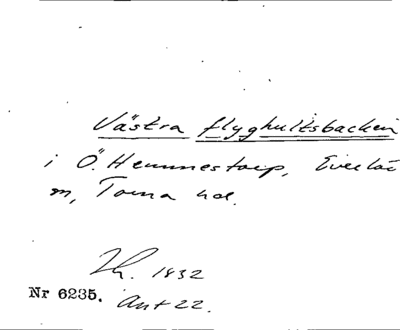 Västra flyghultsbacken
i Ö. Hemmestorp, Everlöv
m, Torna hd.
Lh. 1832
Nr 6235. Ant 22.